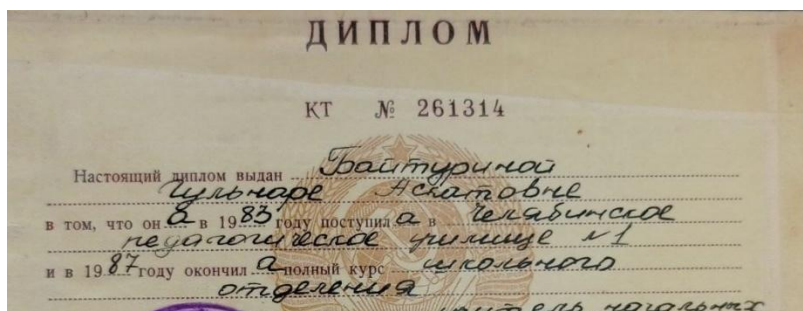 ДИПЛОМ
КТ № 261314
Настоящий диплом выдан Байтуриной
Гульнаре Асхатовне
в том, что она в 1983 году поступила в Челябинское
педагогическое училище №1
и в 1987 году окончила полный курс школьного
отделения
учитель начальных